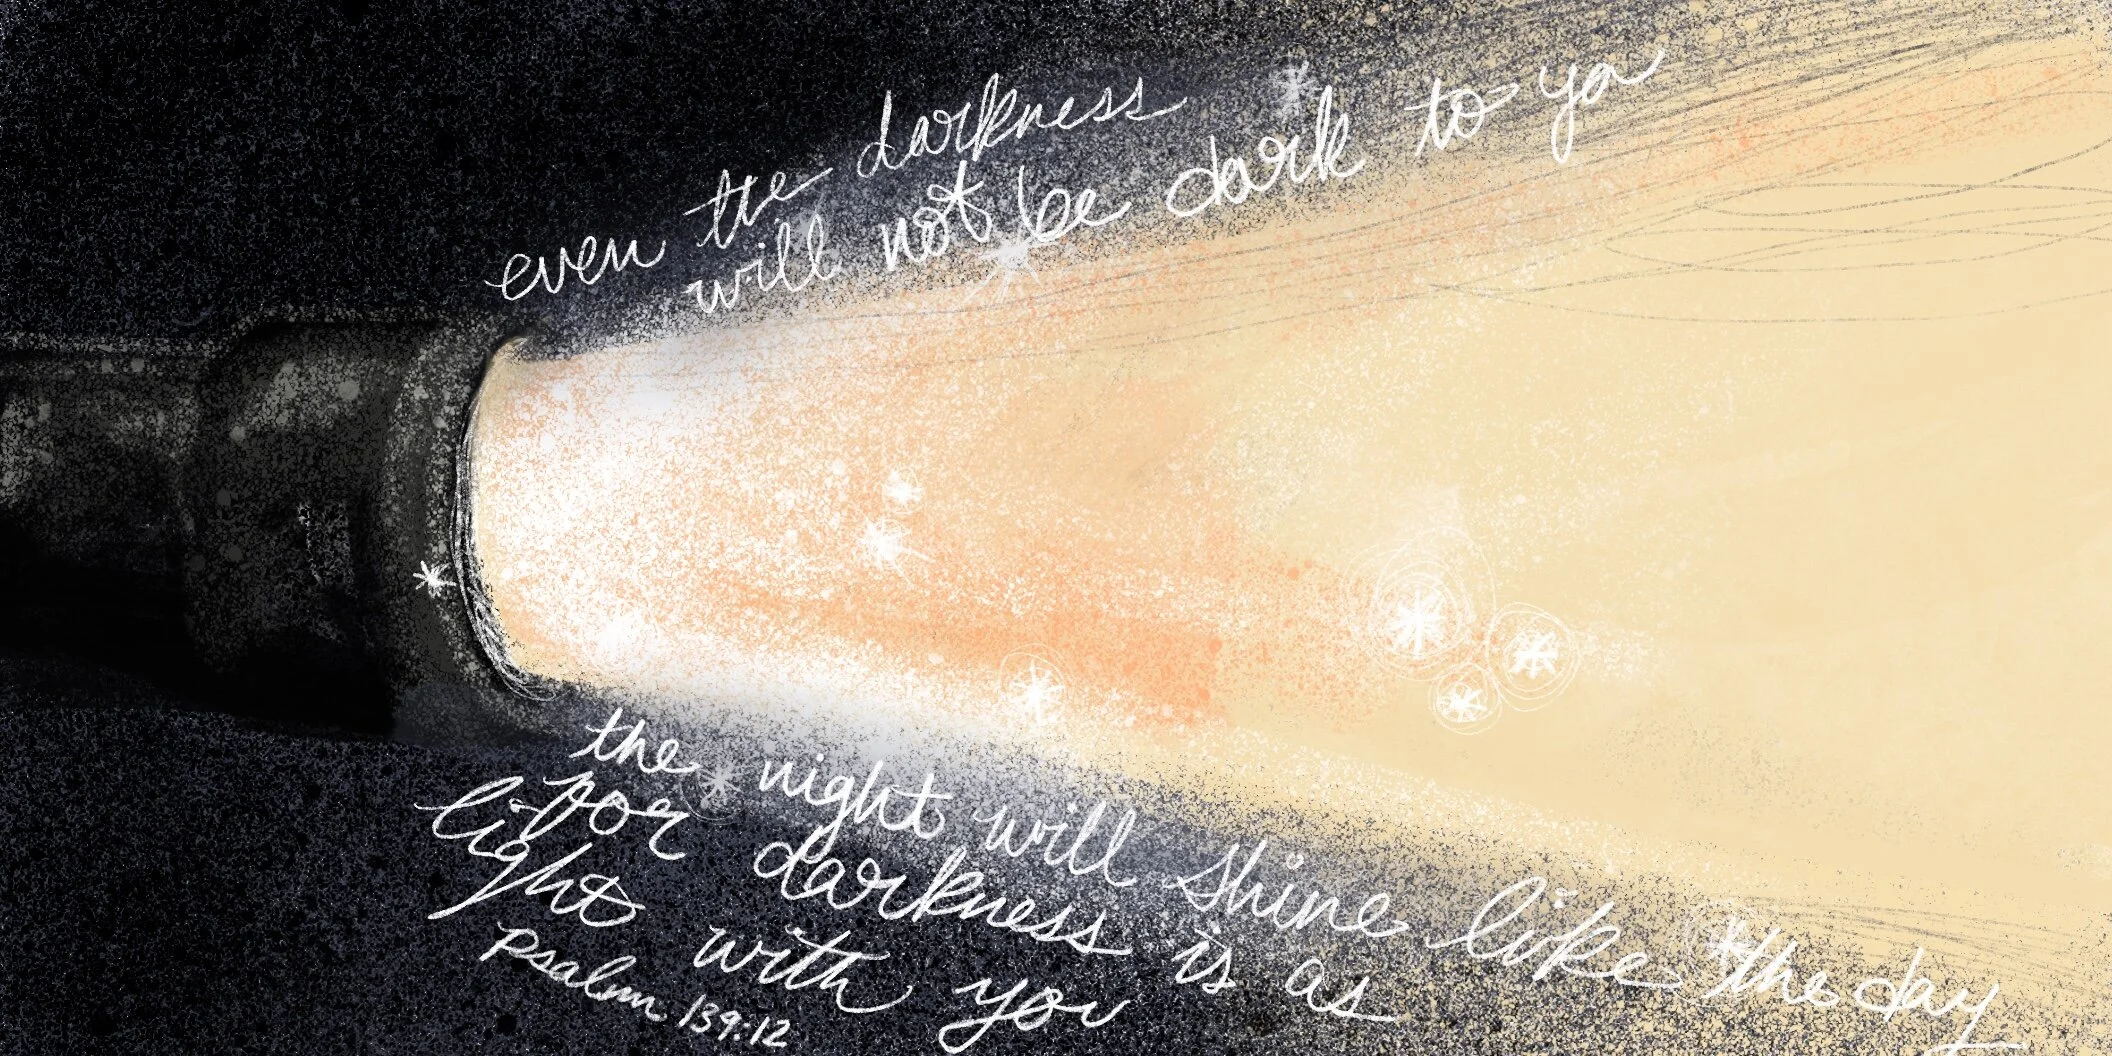 even the darkness
will not be dark to you
the night will shine like the day
for darkness is as
light with you
psalm 139:12